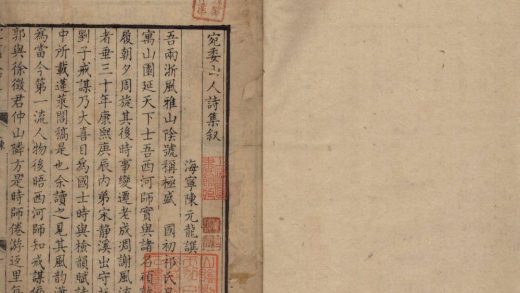 宛委山人詩集叙
海寧陳元龍譔
吾兩浙風雅山陰號稱極盛 國初祁氏
寓山園延天下士吾西河師實與諸名碩
履朝夕周旋其後時事變遷老成凋謝風流
者垂三十年康熙庚辰內弟宋靜溪出守
劉子戒謀乃大喜目為國士時與檢韻賦詩
中所載蓬萊閣稿是也余讀之見其風韵瀟
為當今第一流人物後晤西河師知戒謀
郭與徐徵君仲山隣方是時師倦游里